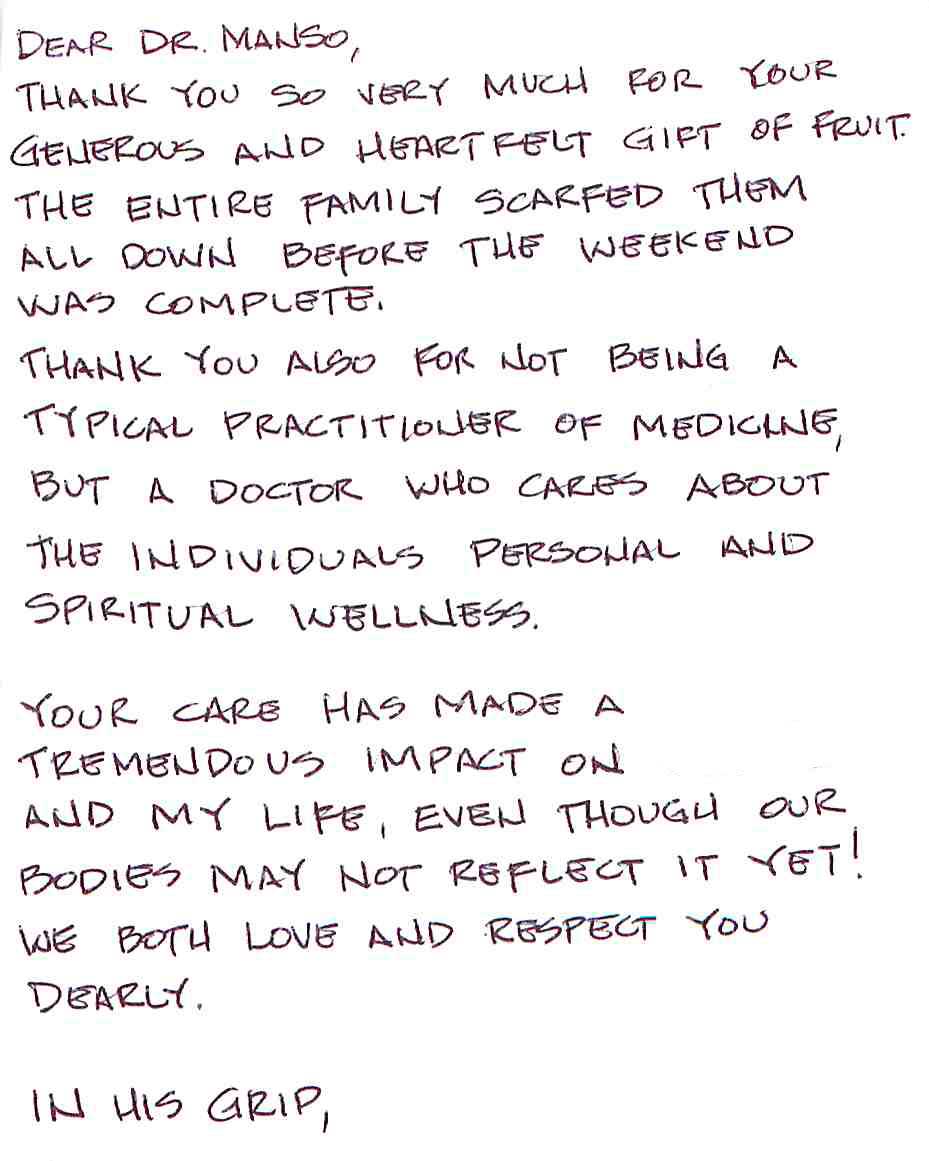 DEAR DR. MANSO,
THANK YOU SO VERY MUCH FOR YOUR
GENEROUS AND HEARTFELT GIFT OF FRUIT.
THE ENTIRE FAMILY SCARFED THEM
ALL DOWN BEFORE THE WEEKEND
WAS COMPLETE.
THANK YOU ALSO FOR NOT BEING A
TYPICAL PRACTITIONER OF MEDICINE,
BUT A DOCTOR WHO CARES ABOUT
THE INDIVIDUALS PERSONAL AND
SPIRITUAL WELLNESS.
YOUR CARE HAS MADE A
TREMENDOUS IMPACT ON
AND MY LIFE, EVEN THOUGH OUR
BODIES MAY NOT REFLECT IT YET!
WE BOTH LOVE AND RESPECT YOU
DEARLY.
IN HIS GRIP,